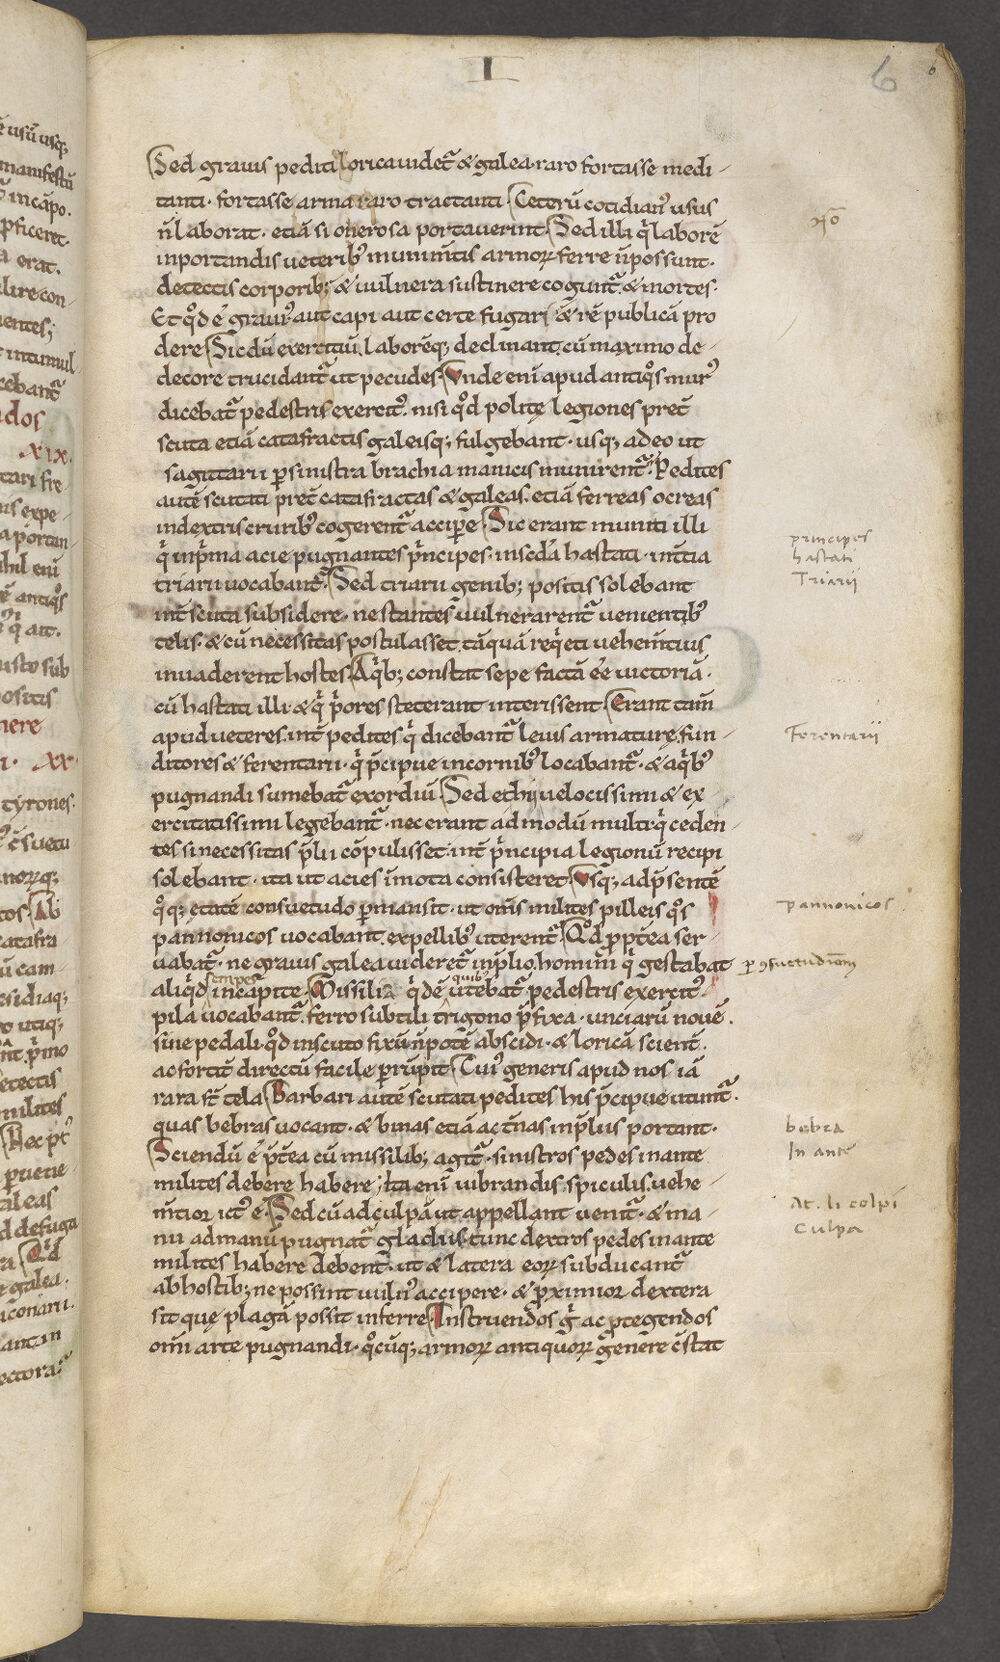 I
6
6
Sed gravis pediti lorica videt᷑ & galea. raro fortasse medi-
tanti. fortasse arma raro tractanti. Ceterū cotidian᷒ usus
n̄ laborat. etiā si onerosa portaverint. Sed illi q̇ laborē
in portandis veterib᷒ munim̄tis armoꝝ ferre n̄ possunt.
detectis corporib; & vulnera sustinere cogunt᷑ & mortes.
Et qd̊ ē graviꝰ aut capi aut certe fugari & rē publicā pro
dere. Sic dū exercitiū laborēq; declinant. cū maximo de-
decore trucidant᷑ ut pecudes. Unde enī apud antiqͦs murꝰ
dicebat᷑ pedestris exercitꝰ. nisi qd̊ politę legiones pret᷑
scuta etiā catafractis galeisq; fulgebant. usq; adeo ut
sagittarii ꝑ sinistra brachia manicis munirent᷑. Pedites
autē scutati pret᷑ catafractas & galeas. etiā ferreas ocreas
in dextris crurib᷒ cogerent᷑ acciꝑe. Sic erant muniti illi
q̇ in p̄ma acie pugnantes ṗncipes. in sc̄da hastati. in t̄tia
triarii vocabant᷑. Sed triarii genib; positis solebant
int̄ scuta subsidere. ne stantes vulnerarent᷑ venientib᷒
telis. & cū necessitas postulasset. tāquā reqi̇eti vehem̄tius
invaderent hostes. A q̇b; constat sepe factā eē victoriā.
cū hastati illi & q̇ ṗores steterant interissent. Erant tam̄
apud veteres int̄ pedites q̇ dicebant᷑ levis armaturę fun-
ditores & ferentarii. q̇ p̄cipue in cornib᷒ locabant᷑. & a q̇b᷒
pugnandi sumebat᷑ exordiū. Sed et hij velocissimi & ex-
ercitatissimi legebant᷑. nec erant admodū multi. q̇ ceden-
tes si necessitas p̄lii cōpulisset. int̄ ṗncipia legionū recipi
solebant. ita ut acies īmota consisteret. Usq; ad p̄sentē
qͦq; ętatē consuetudo ꝑmansit. ut om̄s milites pilleis qͦs
pannonicos vocabant. ex pellib᷒ uterent᷑. Qd̊ ꝓpt̄ea ser-
vabat᷑. ne gravis galea videret᷑ in p̄lio. homini q̇ gestabat
aliqi̇d semper in capite. Missilia q̇dē quib᷒ utebat᷑ pedestris exercit᷒
pila vocabant᷑. ferro subtili trigono p̄fixa. unciarū novē.
sive pedali. qd̊ in scuto fixū n̄ potē abscidi. & loricā scient᷑.
ac fortit̄ directū facile ꝑrūpit. Cuiꝰ generis apud nos iā
rara st̄ tela. Barbari autē scutati pedites his p̄cipue utunt᷑.
quas bebras vocant. & binas etiā ac t̄nas in p̄liis portant.
Sciendū ē p̄t̄ea cū missilib; agit᷑. sinistros pedes in ante
milites debere habere; ita enī vibrandis spiculis. vehe-
m̄tior ictꝰ ē. Sed cū ad culpā ut appellant venit᷑. & ma-
nu ad manū pugnat᷑ gladiis. tunc dextros pedes in ante
milites habere debent. ut & latera eoꝝ subducant᷑
ab hostib; ne possint vuln᷒ accipere. & ꝓximior dextera
sit quę plagā possit inferre. Instruendos g̊ ac ꝓtegendos
om̄i arte pugnandi. qͦcūq; armoꝝ antiquoꝝ genere c̄stat
principes
hastati
Triarii
Ferentarii
pannonicos
ꝑ ꝯsuetudinem
bebra
In ante
At. li colpi
Culpa